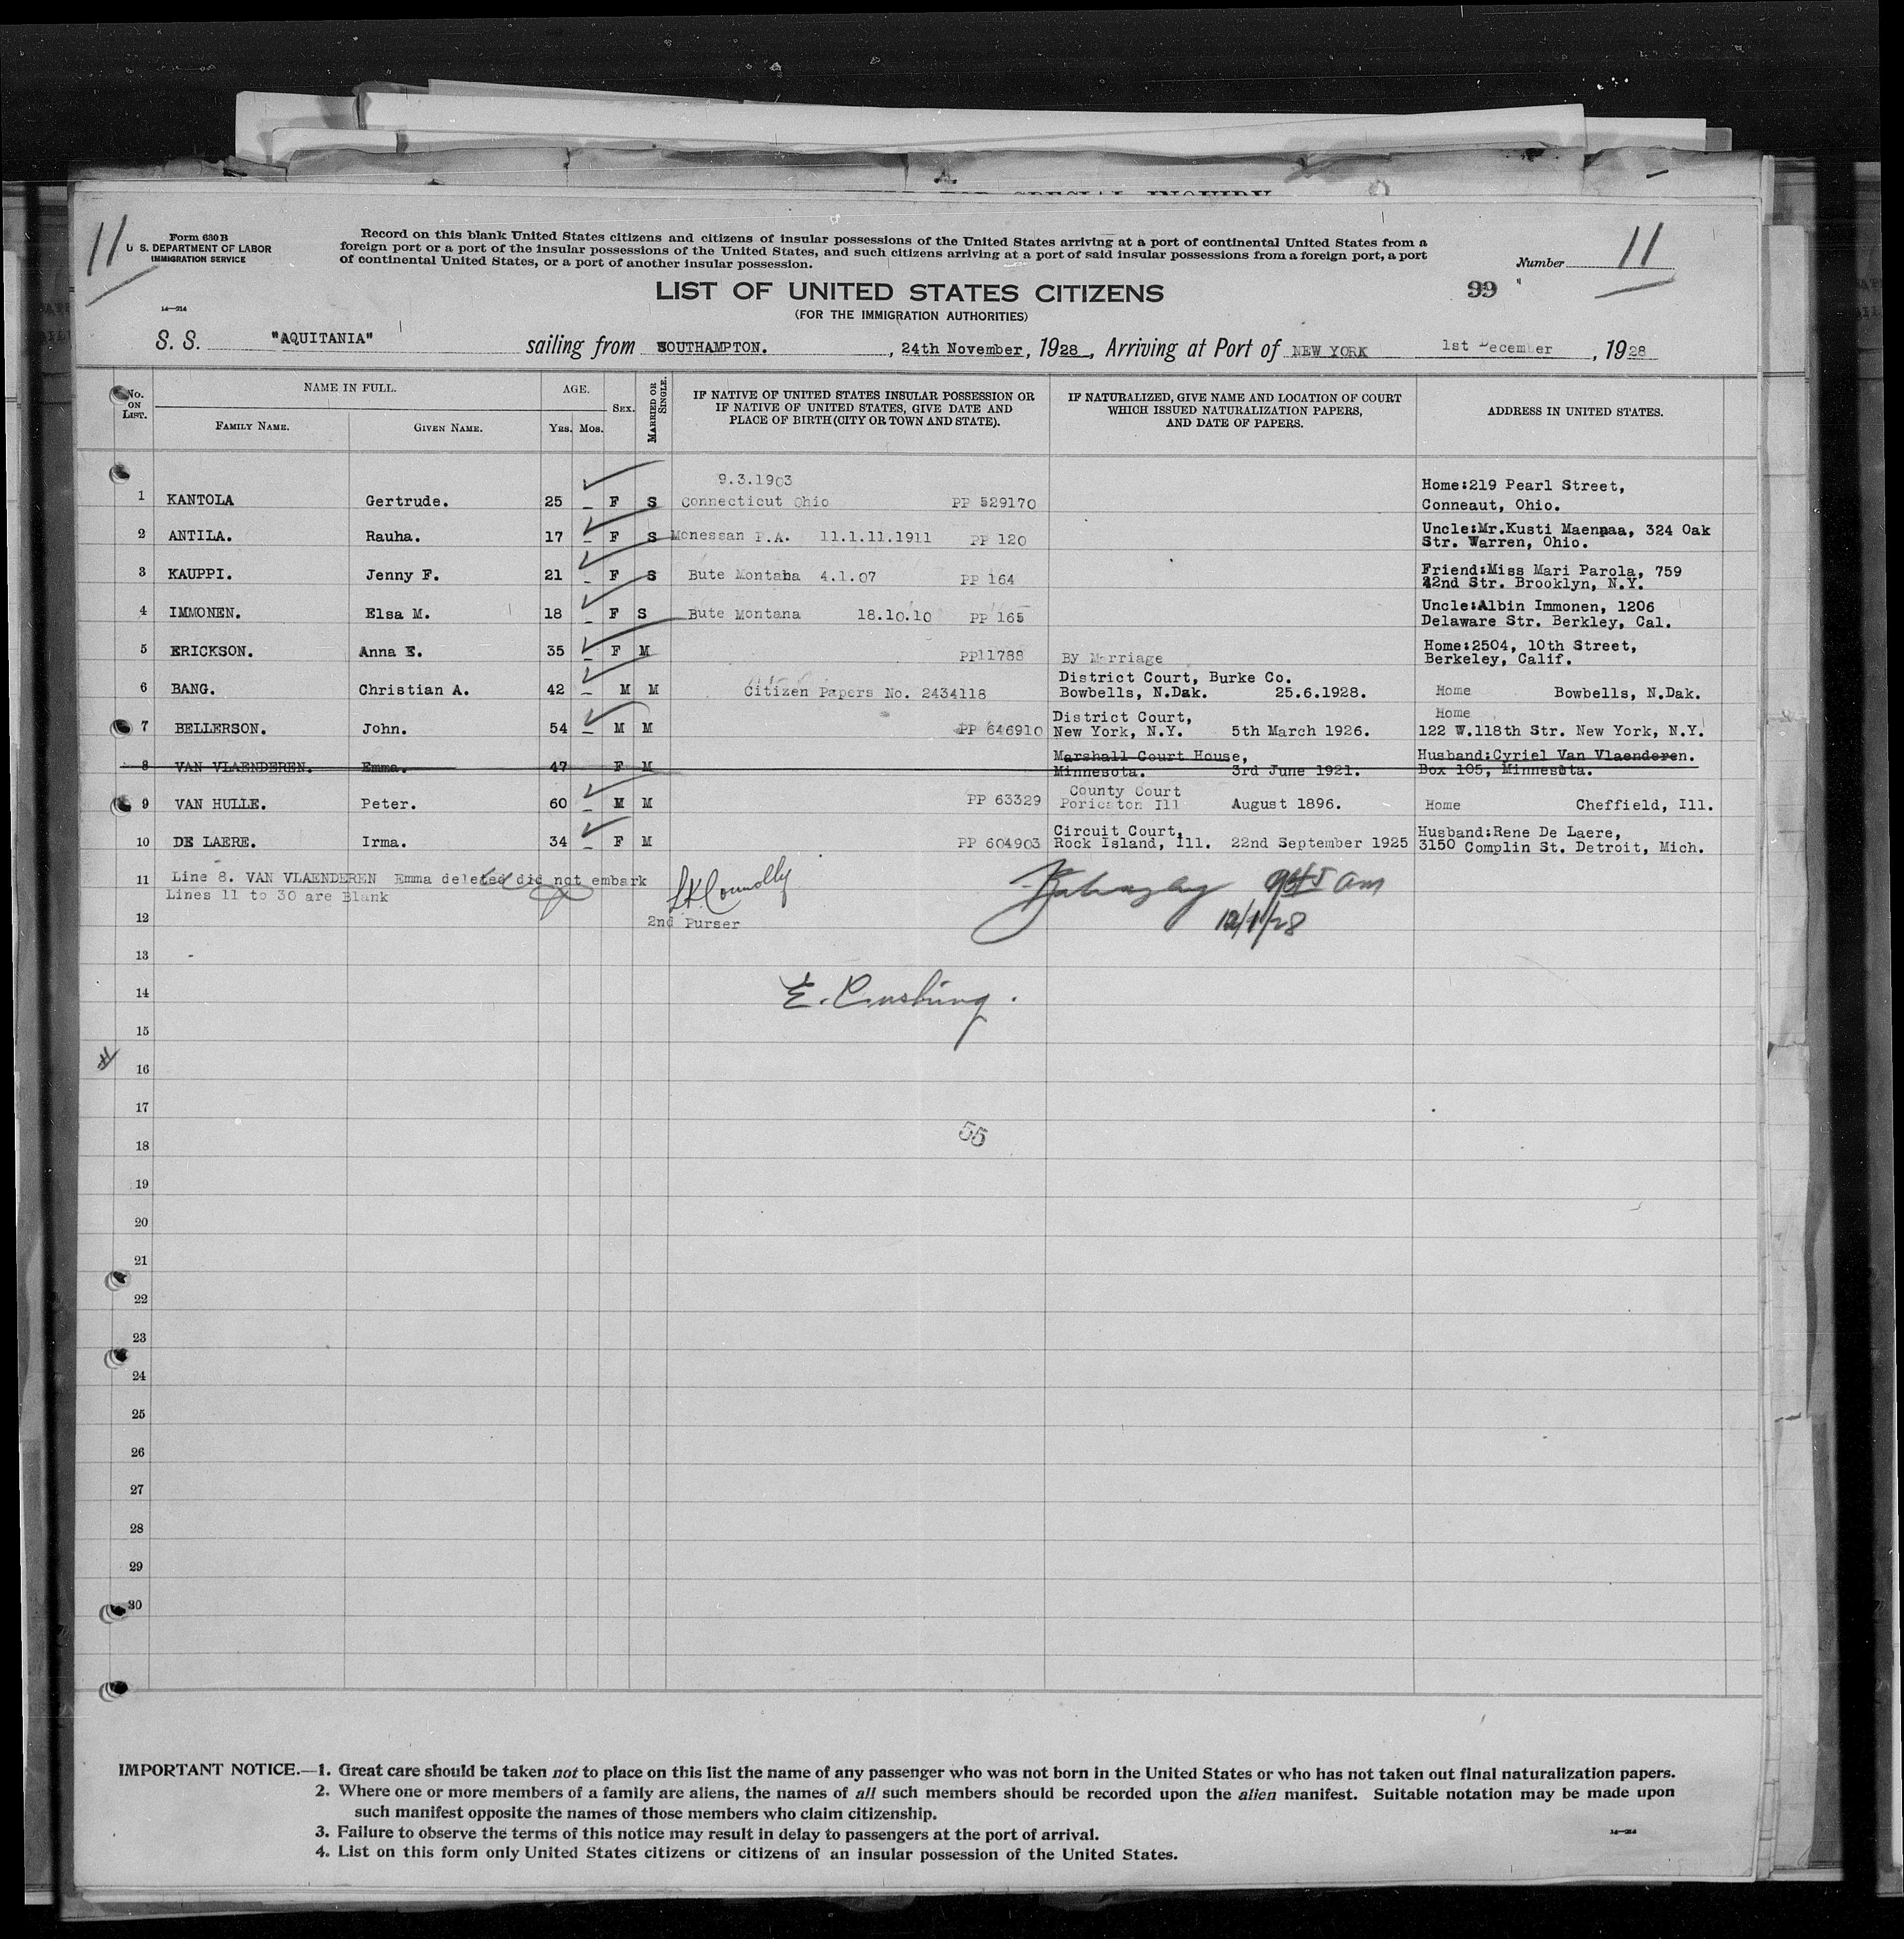 11
Form 630 B
U. S. DEPARTMENT OF LABOR
IMMIGRATION SERVICE
14—214
Record on this blank United States citizens and citizens of insular possessions of the United States arriving at a port of continental United States from a
foreign port or a port of the insular possessions of the United States, and such citizens arriving at a port of said insular possessions from a foreign port, a port
of continental United States, or a port of another insular possession.
Number 11
LIST OF UNITED STATES CITIZENS
99
(FOR THE IMMIGRATION AUTHORITIES)
S. S. "AQUITANIA" sailing from SOUTHAMPTON. , 24th November, 1928, Arriving at Port of NEW YORK 1st December , 1928
No. ON LIST. NAME IN FULL. FAMILY NAME. GIVEN NAME. AGE. YRS. MOS. SEX. MARRIED OR SINGLE. IF NATIVE OF UNITED STATES INSULAR POSSESSION OR IF NATIVE OF UNITED STATES, GIVE DATE AND PLACE OF BIRTH (CITY OR TOWN AND STATE). IF NATURALIZED, GIVE NAME AND LOCATION OF COURT WHICH ISSUED NATURALIZATION PAPERS, AND DATE OF PAPERS. ADDRESS IN UNITED STATES.
9.3.1903 Home:219 Pearl Street,
1 KANTOLA Gertrude. 25 F S Connecticut Ohio PP 529170 Conneaut, Ohio.
Uncle:Mr.Kusti Maenpaa, 324 Oak
2 ANTILA. Rauha. 17 F S Monessan P.A. 11.1.11.1911 PP 120 Str. Warren, Ohio.
Friend:Miss Mari Parola, 759
3 KAUPPI. Jenny F. 21 F S Bute Montana 4.1.07 PP 164 42nd Str. Brooklyn, N.Y.
Uncle:Albin Immonen, 1206
4 IMMONEN. Elsa M. 18 F S Bute Montana 18.10.10 PP 165 Delaware Str. Berkley, Cal.
Home:2504, 10th Street,
5 ERICKSON. Anna E. 35 F M PP11788 By Marriage Berkeley, Calif.
District Court, Burke Co.
6 BANG. Christian A. 42 M M Citizen Papers No. 2434118 Bowbells, N.Dak. 25.6.1928. Home Bowbells, N.Dak.
District Court, Home
7 BELLERSON. John. 54 M M PP 646910 New York, N.Y. 5th March 1926. 122 W.118th Str. New York, N.Y.
Marshall Court House, Husband:Cyriel Van Vlaenderen.
8 VAN VLAENDEREN. Emma. 47 F M Minnesota. 3rd June 1921. Box 105, Minnesota.
County Court
9 VAN HULLE. Peter. 60 M M PP 63329 Ill August 1896. Home Cheffield, Ill.
Circuit Court, Husband:Rene De Laere,
10 DE LAERE. Irma. 34 F M PP 604903 Rock Island, Ill. 22nd September 1925 3150 Complin St. Detroit, Mich.
11 Line 8. VAN VLAENDEREN Emma deleted did not embark
Lines 11 to 30 are Blank
Connolly
2nd Purser
945 am
12/1/28
12
13
E. Cushing.
14
15
16
17
55
18
19
20
21
22
23
24
25
26
27
28
29
30
IMPORTANT NOTICE.—1. Great care should be taken not to place on this list the name of any passenger who was not born in the United States or who has not taken out final naturalization papers.
2. Where one or more members of a family are aliens, the names of all such members should be recorded upon the alien manifest. Suitable notation may be made upon
such manifest opposite the names of those members who claim citizenship.
3. Failure to observe the terms of this notice may result in delay to passengers at the port of arrival.
14—214
4. List on this form only United States citizens or citizens of an insular possession of the United States.